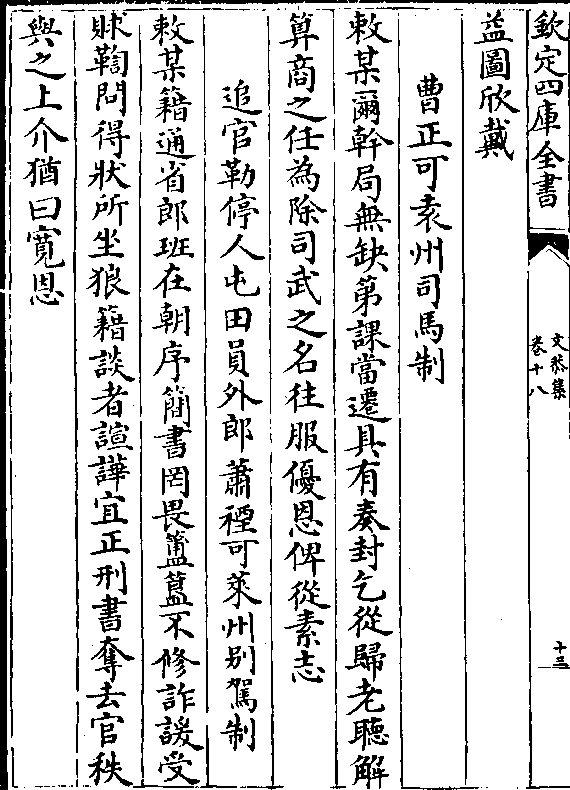 欽定四庫全書
文恭集
卷十八
十三
益圖欣戴
曹正可袁州司馬制
敕某爾幹局無缺第課當遷具有奏封乞從歸老聽解
算商之任為除司武之名往服優恩俾從素志
追官勒停人屯田員外郎蕭禋可萊州别駕制
敕某籍通省郎班在朝序簡書罔畏簠簋不修詐諼受
賕鞫問得狀所坐狼籍談者諠譁宜正刑書奪去官秩
與之上介猶曰寛恩